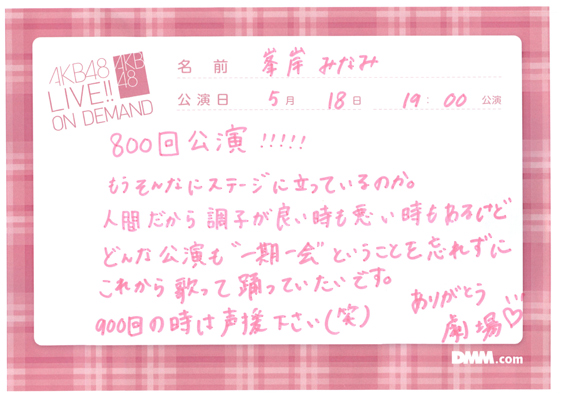 AKB48
LIVE!!
ON DEMAND
AKB
48
名前 峯岸みなみ
公演日 5月 18日 19:00 公演
800回公演!!!!!
もうそんなにステージに立っているのか。
人間だから調子が良い時も悪い時もあるけど
どんな公演も"一期一会"ということを忘れずに
これから歌って踊っていたいです。
900回の時は声援下さい(笑)
ありがとう
劇場♡
DMM.com